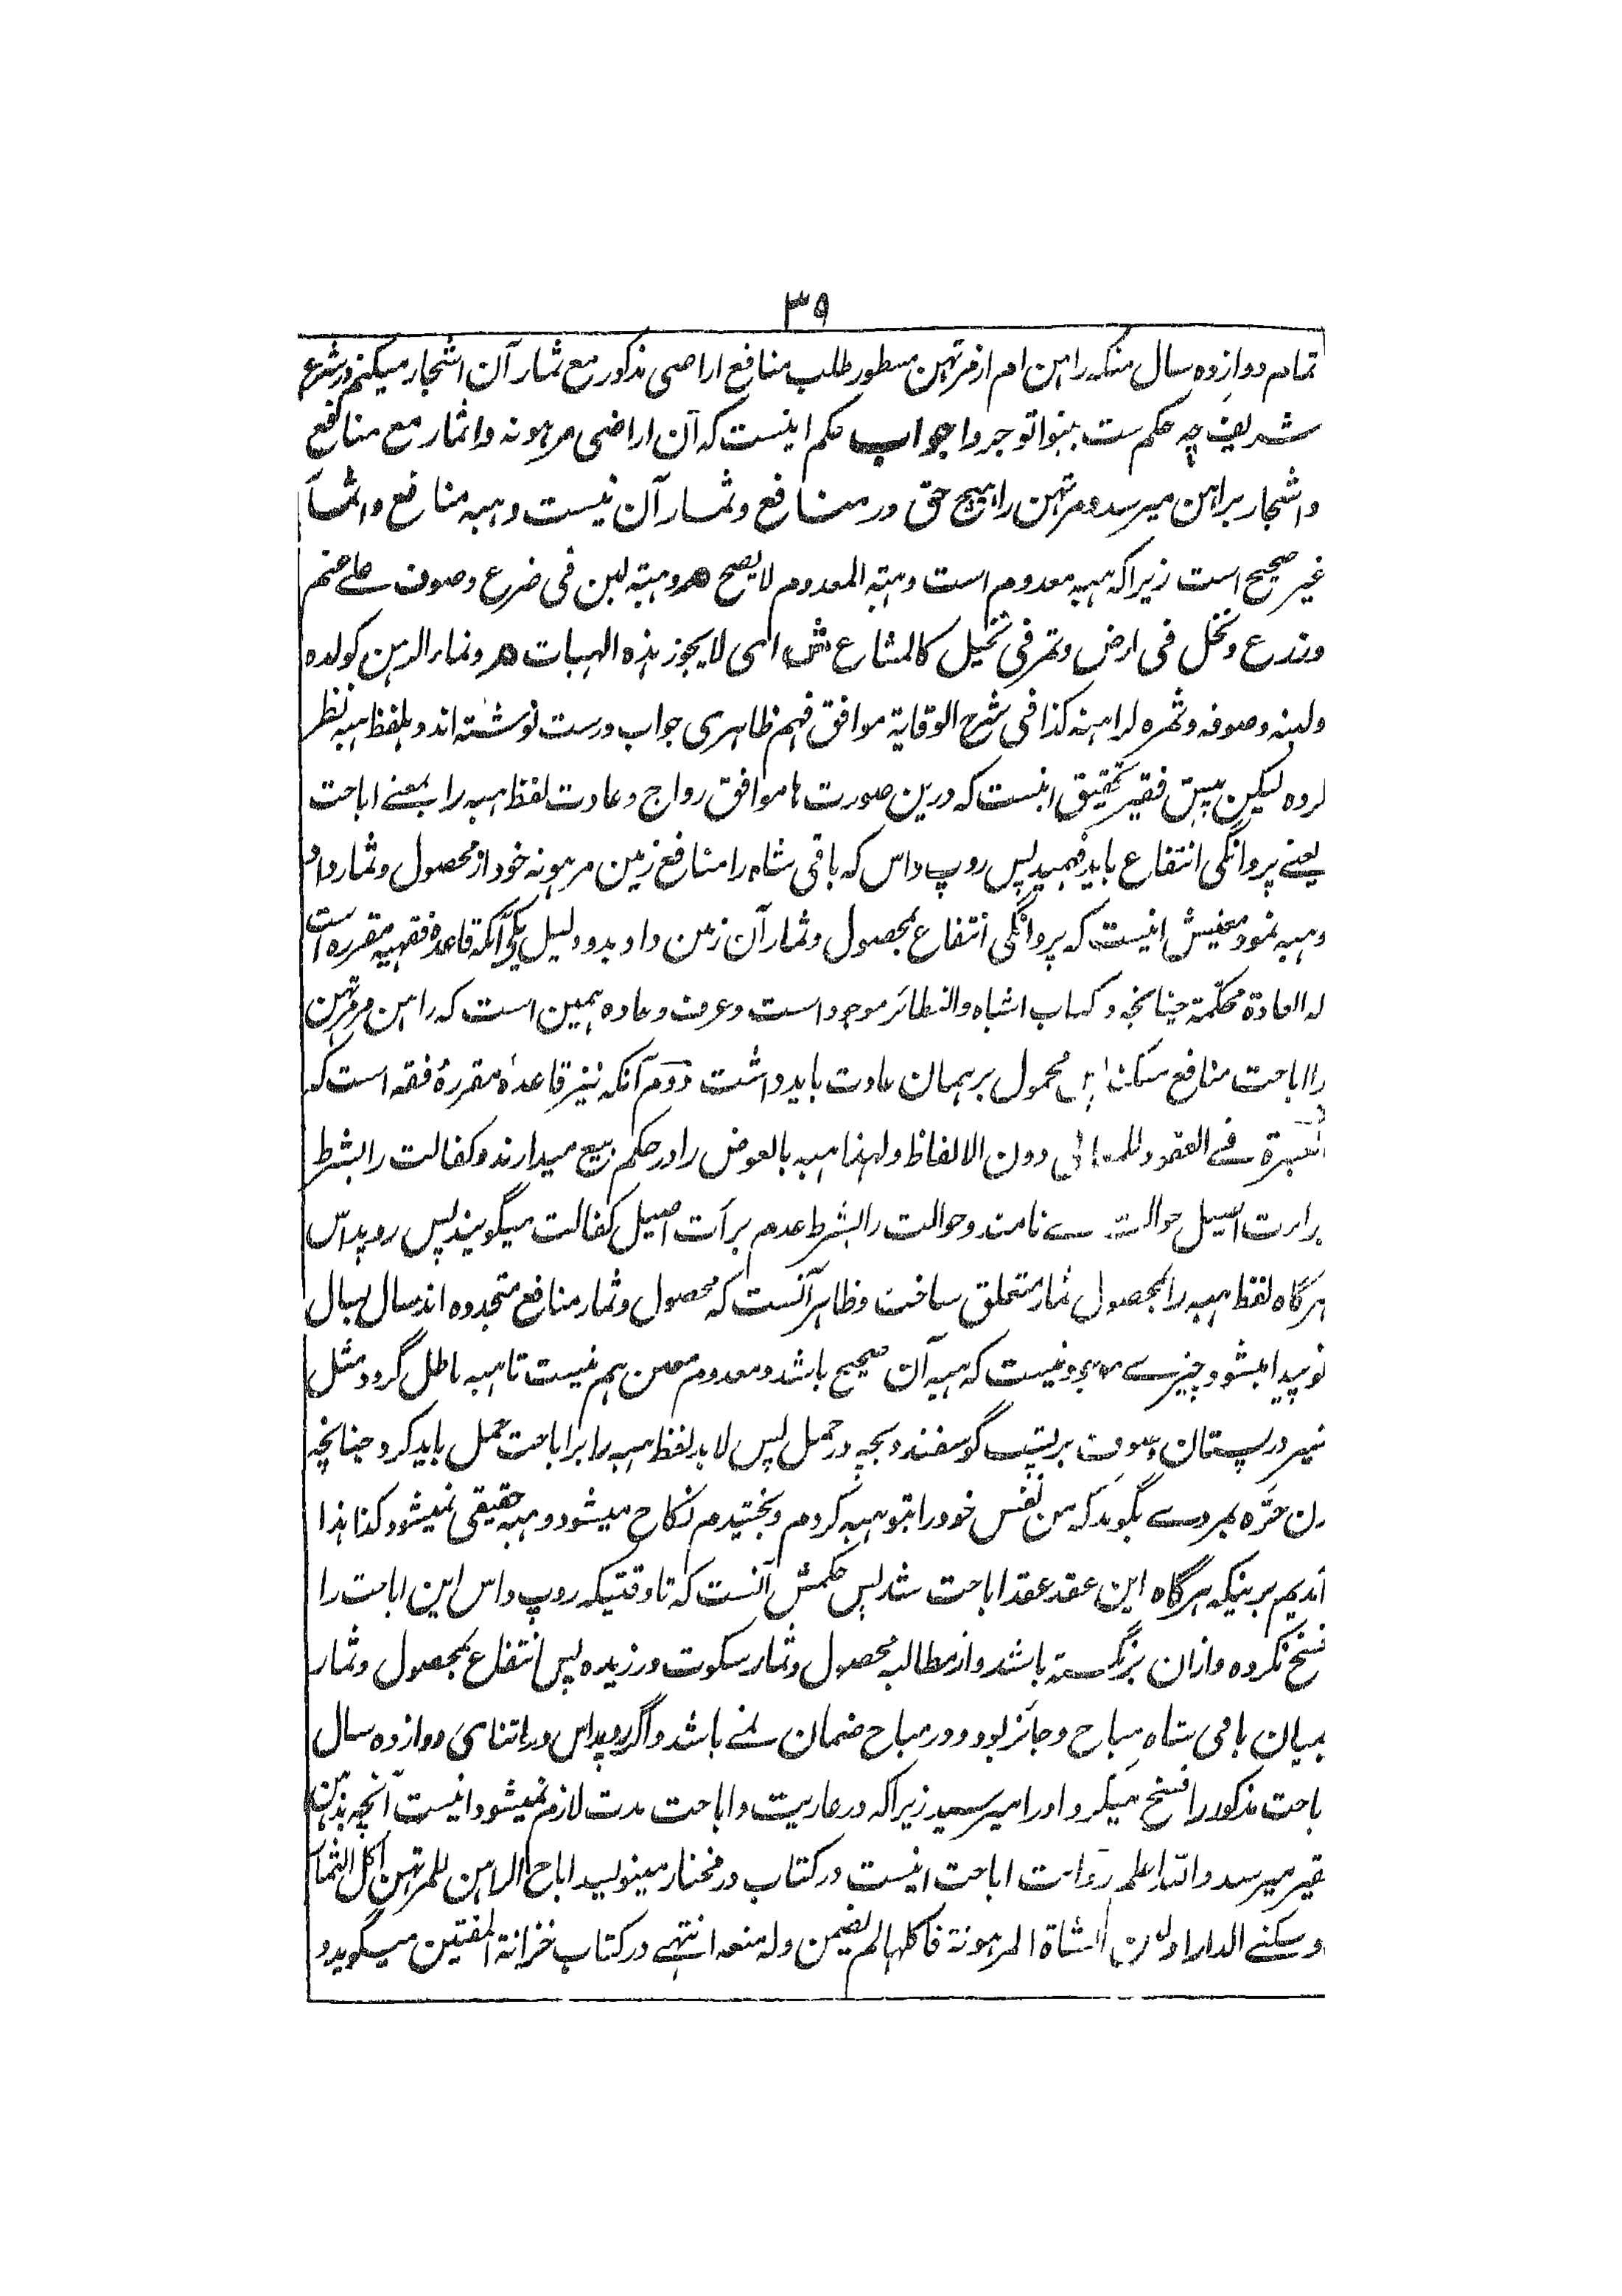 ٣٩
تمام دوازده سال منکه راهن ام از مرتهن مسطور طلب منافع اراضی مذکور مع ثمار آن اشجار میکنم در شرع
شریف چه حکم ست بینوا توجروا جواب حکم اینست که آن اراضی مرهونه و اثمار مع منافع
و اشجار براهن میرسد و مرتهن را هیچ حق در منافع و ثمار آن نیست و هبه منافع و اثمار
غیر صحیح است زیرا که هبه معدوم است و هبة المعدوم لا یصح هر وهبة لبن فی ضرع وصوف علے غنم
وزرع ونخل فی ارض وتمر فی نخیل کالمشاع ش ای لا یجوز هذه الهبات هر ونماء الرهن کولده
ولبنه وصوفه وثمره لراهنه کذا فی شرح الوقایة موافق فهم ظاهری جواب درست نوشته اند و بلفظ هبه نظر
کرده لیکن پیش فقیر تحقیق اینست که درین صورت ها موافق رواج و عادت لفظ هبه را بمعنے اباحت
یعنے پروانگی انتفاع باید فهمید پس روپ داس که باقی شاه را منافع زمین مرهونه خود از محصول و ثمار داد
و هبه نمود معنیش اینست که پروانگی انتفاع بمحصول و ثمار آن زمین داد بدو دلیل یکی آنکه قاعده فقهیه مقرره است
که العادة محکمة چنانچه در کتاب اشباه والنظائر موجود است و عرف و عاده همین است که راهن مر مرتهن
را اباحت منافع میکند پس محمول بر همان عادت باید داشت دوم آنکه نیز قاعدهٔ مقررهٔ فقه است که
العبرة فے العقود للمعانی دون الالفاظ و لهذا هبه بالعوض را در حکم بیع میدارند و کفالت را بشرط
برارت اصیل حوالت مے نامند و حوالت را بشرط عدم برآت اصیل کفالت میگویند پس روپداس
هرگاه لفظ هبه را بمحصول ثمار متعلق ساخت و ظاهر آنست که محصول و ثمار منافع متجدده اند سال بسال
نو پیدا میشود چیزے موجود نیست که هبه آن صحیح باشد و معدوم معین هم نیست تا هبه باطل گردد مثل
شیر در پستان و صوف بر پشت گوسفند و بچه در حمل پس لابد لفظ هبه را بر اباحت حمل باید کرد چنانچه
زن حره بمردے بگوید که من نفس خود را بتو هبه کردم و بخشیدم نکاح میشود و هبه حقیقی نمیشود کذا هذا
آمدیم برینکه هرگاه این عقد عقد اباحت شد پس حکمش آنست که تا وقتیکه روپ داس این اباحت را
فسخ نکرده و ازان برنگشته باشد و از مطالبه محصول و ثمار سکوت ورزیده پس انتفاع بمحصول و ثمار
بمیان باقی شاه مباح و جائز بود و در مباح ضمان نمے باشد و اگر روپداس در اثنای دوازده سال
باحت مذکور را فسخ میکرد او را میرسید زیرا که در عاریت و اباحت مدت لازم نمیشود اینست آنچه بذهن
فقیر میرسد والله اعلم روایت اباحت اینست در کتاب در مختار مینویسد اباح الراهن للمرتهن اکل الثمار
و سکنے الدار او لبن الشاة المرهونة فاکلها لم یضمن وله منعه انتهے در کتاب خزانة المفتین میگوید و